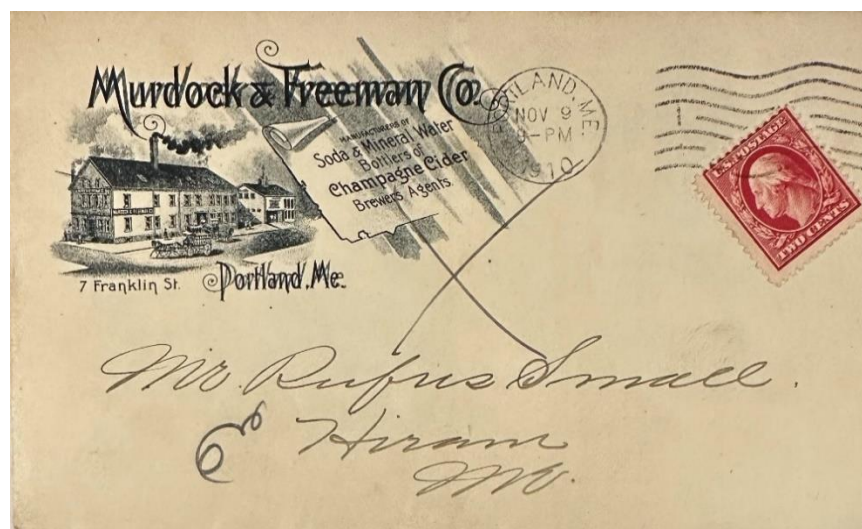 Murdock & Freeman Co.
MANUFACTURERS OF
Soda & Mineral Water
Bottlers of
Champagne Cider
Brewers Agents.
7 Franklin St.
Portland, Me.
PORTLAND, ME.
NOV 9
9-PM
1910
1
U.S. POSTAGE
TWO CENTS
Mr. Rufus Small.
Hiram
Me.